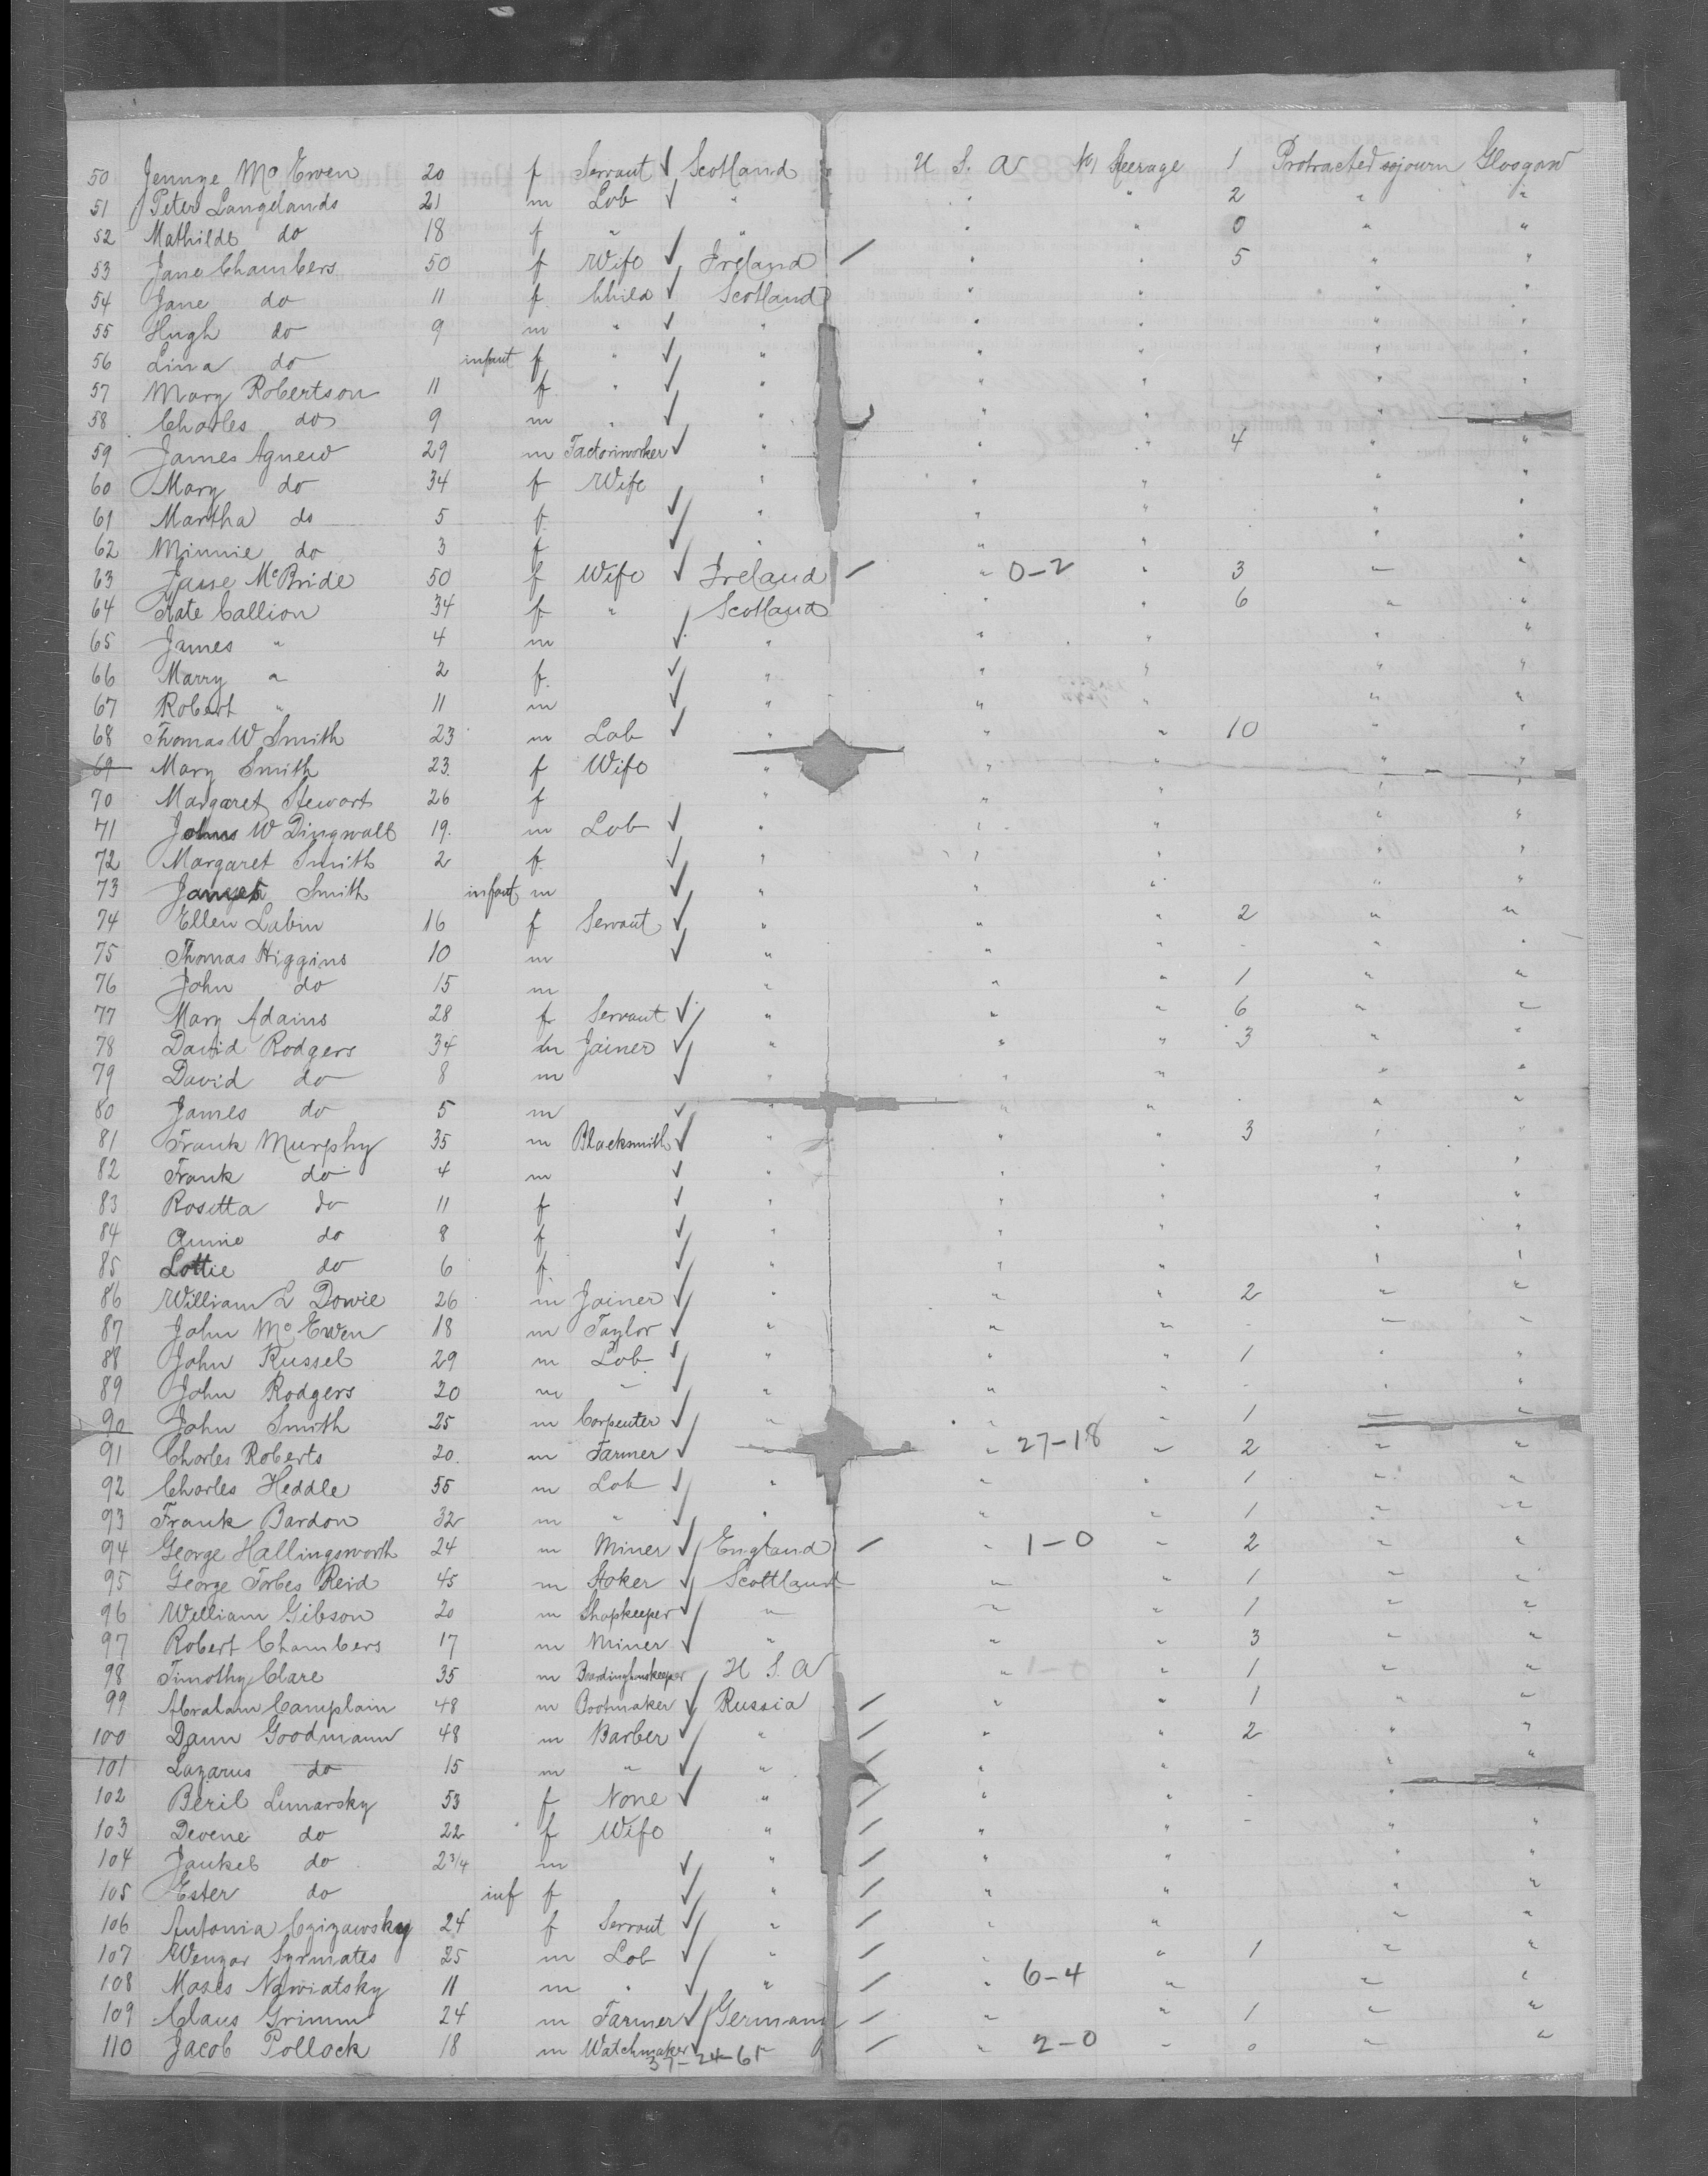 50 Jennye Mc Ewen 20 f Servant ✓ Scotland U S. A N Steerage 1 Protracted sojourn Glasgow
51 Peter Langelands 21 m Lab ✓ " " 2 " "
52 Mathilde do 18 f " " " " 0 " "
53 Jane Chambers 50 f Wife ✓ Ireland / " " 5 " "
54 Jane do 11 f Child ✓ Scotland " " " "
55 Hugh do 9 m " ✓ " " " " "
56 Lina do infant f " ✓ " " " " "
57 Mary Robertson 11 f " ✓ " " " " "
58 Charles do 9 m " ✓ " " " "
59 James Agnew 29 m Factoriworker ✓ " " " 4 " "
60 Mary do 34 f Wife " " " " "
61 Martha do 5 f ✓ " " " " "
62 Minnie do 3 f ✓ " " " "
63 Jasse McBride 50 f Wife ✓ Ireland / " 0-2 " 3 " "
64 Kate Callion 34 f " Scotland " " 6 " "
65 James " 4 m ✓ " " " " "
66 Marry " 2 f ✓ " " " " "
67 Robert " 11 m ✓ " " " " "
68 Thomas W Smith 23 m Lab ✓ " " " 10 " "
69 Mary Smith 23 f Wife " " " "
70 Margaret Stewart 26 f " " " " "
71 Johns W Dingwall 19 m Lab ✓ " " " " "
72 Margaret Smith 2 f ✓ " " " " "
73 Smith infant m ✓ " " " " "
74 Ellen Labin 16 f Servant ✓ " " " 2 " "
75 Thomas Higgins 10 m ✓ " " " - " "
76 John do 15 m " " " 1 " "
77 Mary Adams 28 f Servant ✓ " " " 6 " "
78 David Rodgers 34 m Joiner ✓ " " " 3 " "
79 David do 8 m ✓ " " " " "
80 James do 5 m ✓ " " " " "
81 Frank Murphy 35 m Blacksmith ✓ " " " 3 " "
82 Frank do 4 m ✓ " " " " "
83 Rosetta do 11 f ✓ " " " " "
84 Annie do 8 f ✓ " " " " "
85 Lottie do 6 f ✓ " " " " "
86 William L Dowie 26 m Joiner ✓ " " " 2 " "
87 John Mc Ewen 18 m Taylor ✓ " " " - " "
88 John Russel 29 m Lab ✓ " " " 1 " "
89 John Rodgers 20 m " ✓ " " " - " "
90 John Smith 25 m Carpenter ✓ " " " 1 " "
91 Charles Roberts 20 m Farmer ✓ " " 27-18 " 2 " "
92 Charles Heddle 55 m Lab ✓ " " " 1 " "
93 Frank Bardon 32 m " ✓ " " " 1 " "
94 George Hallingsworth 24 m Miner ✓ England / " 1-0 " 2 " "
95 George Forbes Reid 45 m Stoker ✓ Scottland " " 1 " "
96 William Gibson 20 m Shopkeeper ✓ " " " 1 " "
97 Robert Chambers 17 m Miner ✓ " " " 3 " "
98 Timothy Clare 35 m Boardinghouskeeper U S. A " " 1 " "
99 Abraham Camplain 48 m Bootmaker ✓ Russia / " " 1 " "
100 Dann Goodmann 48 m Barber ✓ " / " " 2 " "
101 Lazarus do 15 m " ✓ " / " " " "
102 Beril Lunarsky 53 f None ✓ " / " " - "
103 Devene do 22 f Wife " / " " - " "
104 Jankel do 2 3/4 m ✓ " / " " " "
105 Ester do inf f ✓ " / " " " "
106 Antonia Czizawsky 24 f Servant ✓ " / " " " "
107 Wenzar Syrmates 25 m Lab ✓ " / " " 1 " "
108 Moses Nawiatsky 11 m " ✓ " / " 6-4 " " "
109 Claus Grimm 24 m Farmer ✓ Germany / " " 1 " "
110 Jacob Pollack 18 m Watchmaker ✓ " / " 2-0 " 0 " "
37-24-61